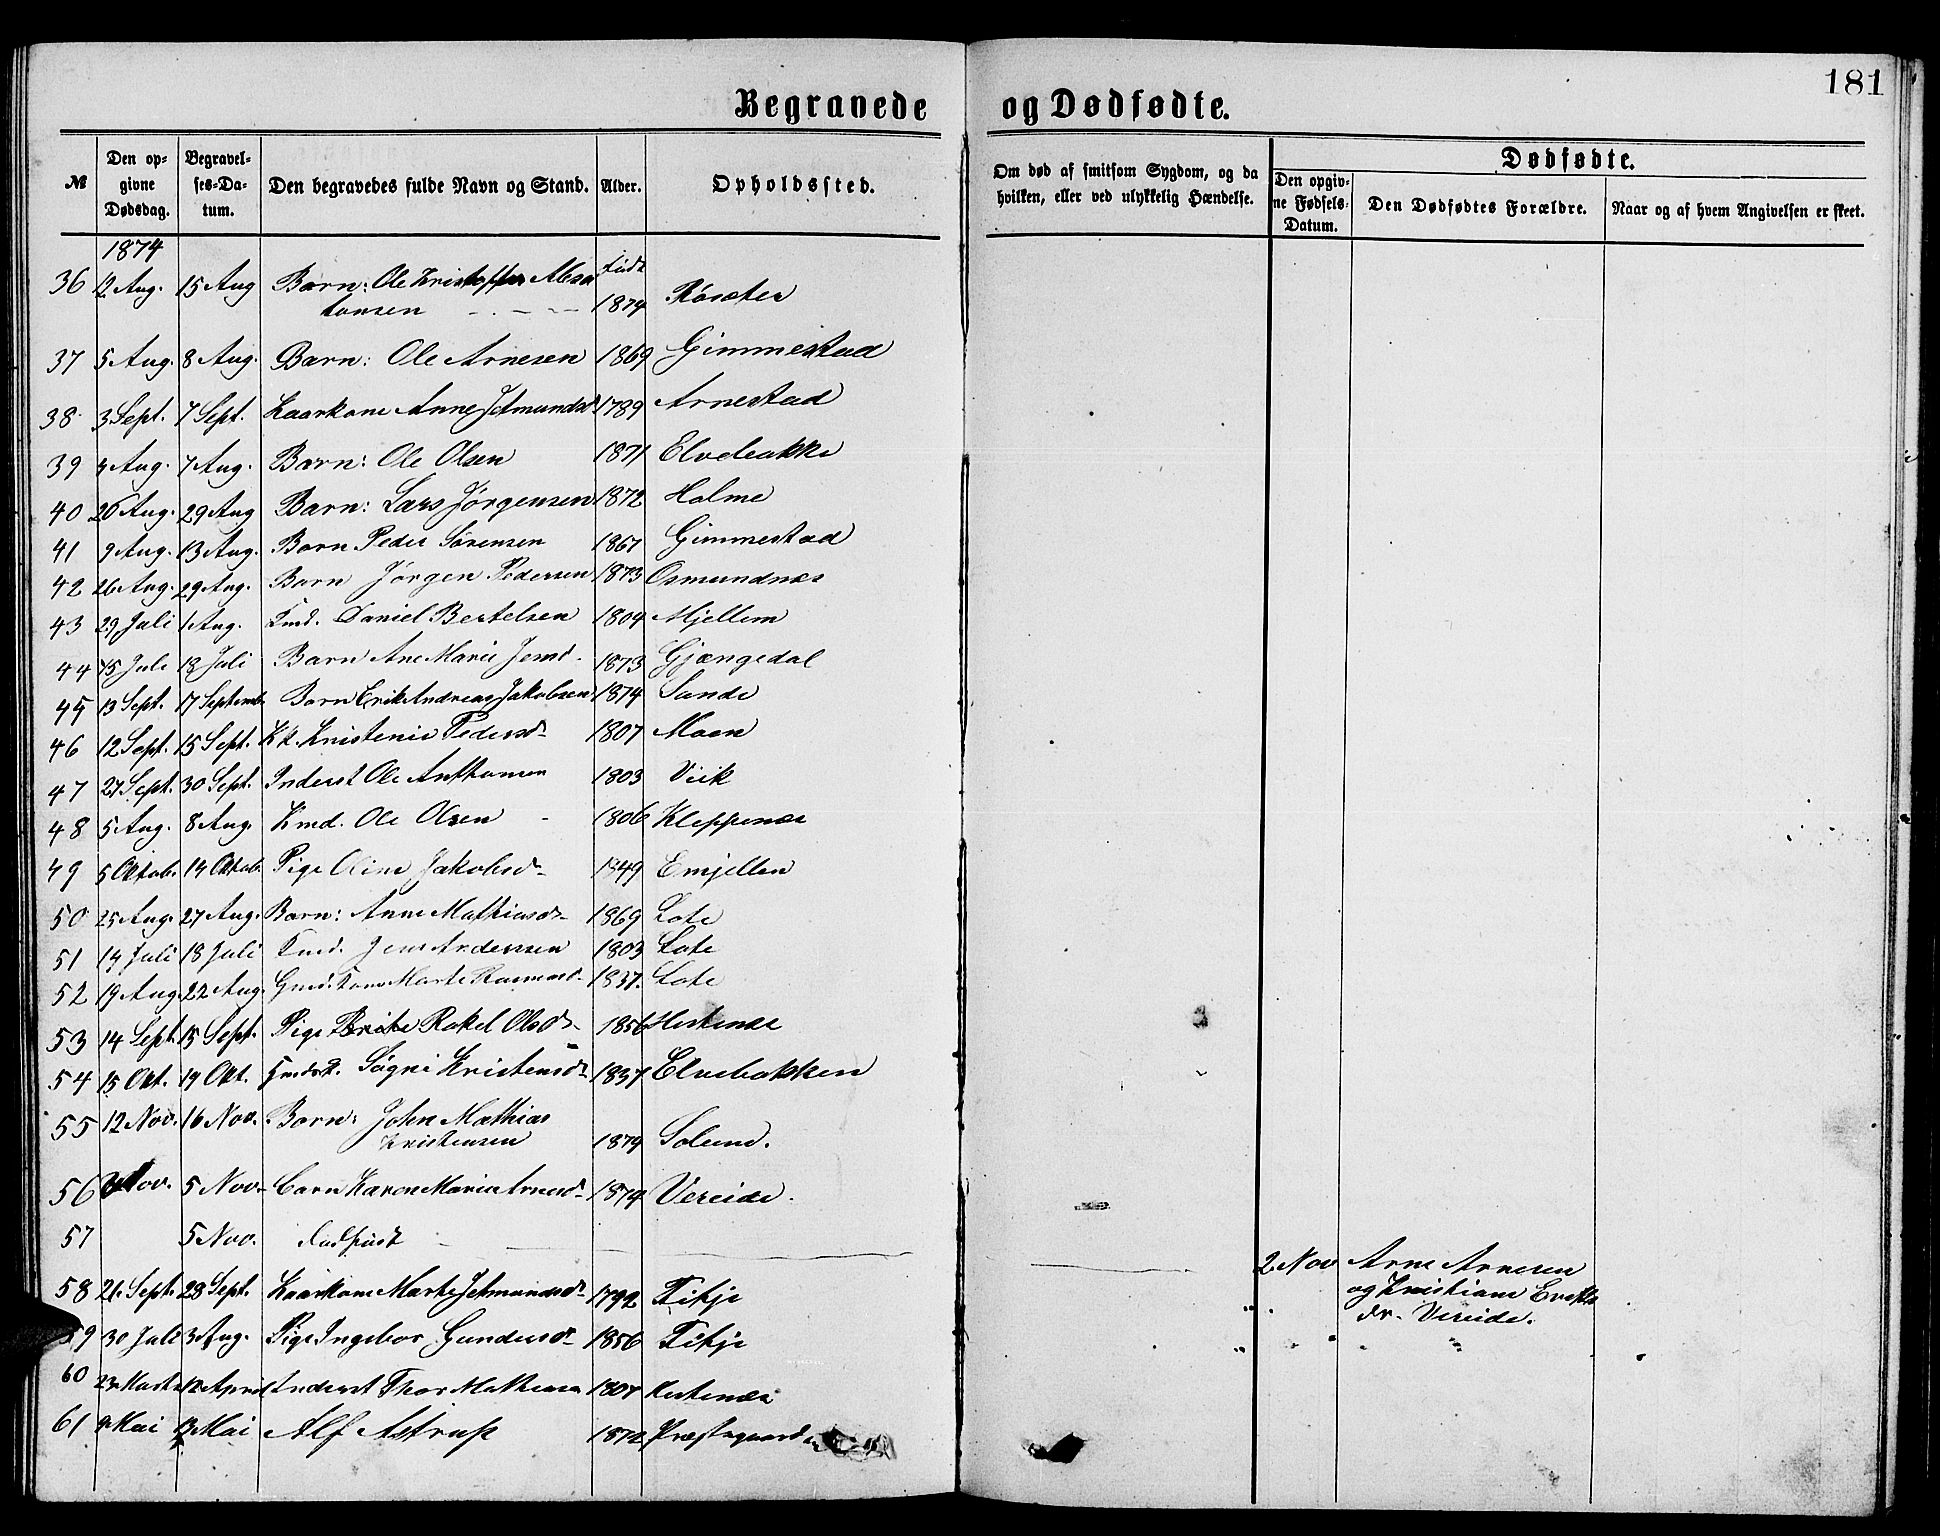 181
Begravede og Dødfødte.
№
Den opgivne Dødsdag.
Begravelses-Datum.
Den begravedes fulde Navn og Stand.
Alder.
Opholdssted.
Om død af smitsom Sygdom, og da hvilken, eller ved ulykkelig Hændelse.
Dødfødte.
Den opgivne Fødsels-Datum.
Den Dødfødtes Forældre.
Naar og af hvem Angivelsen er skeet.
1874
36 12 Aug. 15 Aug Barn: Ole Kristoffer Absa
tonsen 1874 Røsæter
37 5 Aug. 8 Aug. Barn: Ole Arnesen 1869 Gimmestad
38 3 Sept. 7 Sept. Kaarkone Anne Jetmundsd 1789 Arnestad
39 3 Aug. 7 Aug. Barn: Ole Olsen 1871 Elvebakke
40 26 Aug. 29 Aug Barn: Lars Jørgensen 1872 Holme
41 9 Aug. 13 Aug. Barn Peder Sørensen 1867 Gimmestad
42 26 Aug. 29 Aug. Barn Jørgen Pedersen 1873 Osmundnæs
43 29 Juli 1 Aug. Kmd. Daniel Bertelsen 1804 Mjellem
44 15 Juli 18 Juli Barn Ane Marie Jensd. 1873 Gjængedal
45 13 Sept. 17 Septemb. Barn Erik Andreas Jakobsen 1874 Sande
46 12 Sept. 15 Sept. Kk. Kristenie Pedersd 1807 Moen
47 27 Sept. 30 Sept. Inderst Ole Anthonsen 1803 Viik
48 5 Aug. 8 Aug. Kmd. Ole Olsen 1806 Kleppenæs
49 5 Oktob. 14 Oktob. Pige Oline Jakobsd 1849 Emjellen
50 25 Aug. 27 Aug. Barn: Anne Mathiasd 1869 Lote
51 14 Juli 18 Juli Kmd. Jens Andersen 1803 Lote
52 19 Aug 22 Aug. Gmd. Kone Marte Rasmusd 1837. Lote
53 14 Sept. 15 Sept. Pige Brite Rakel Olsd 1856 Hestenæs
54 15 Okt. 19 Okt. Søgni Kristensd 1837 Elvebakken
55 12 Nov. 16 Nov. Barn: John Mathias
Kristensen 1874 Soleim.
56 Nov. 5 Nov. Barn Karen Maria Arnesd 1874 Vereide.
57 5 Nov. dødfødt
2 Nov Arne Arnesen
og Kristiane Evertsdr. Vereide.
58 21 Sept. 28 Sept. Kaarkone Marte Jetmundsd 1792 Fitje
59 30 Juli 3 Aug. Pige Ingebor Gundersd 1856 Fitje
60 23 Marts 12 April Inderst Thor Mathiesen 1807 Hestenæs
61 9 Mai 13 Mai Alf Astrup 1872 Præstegaarden